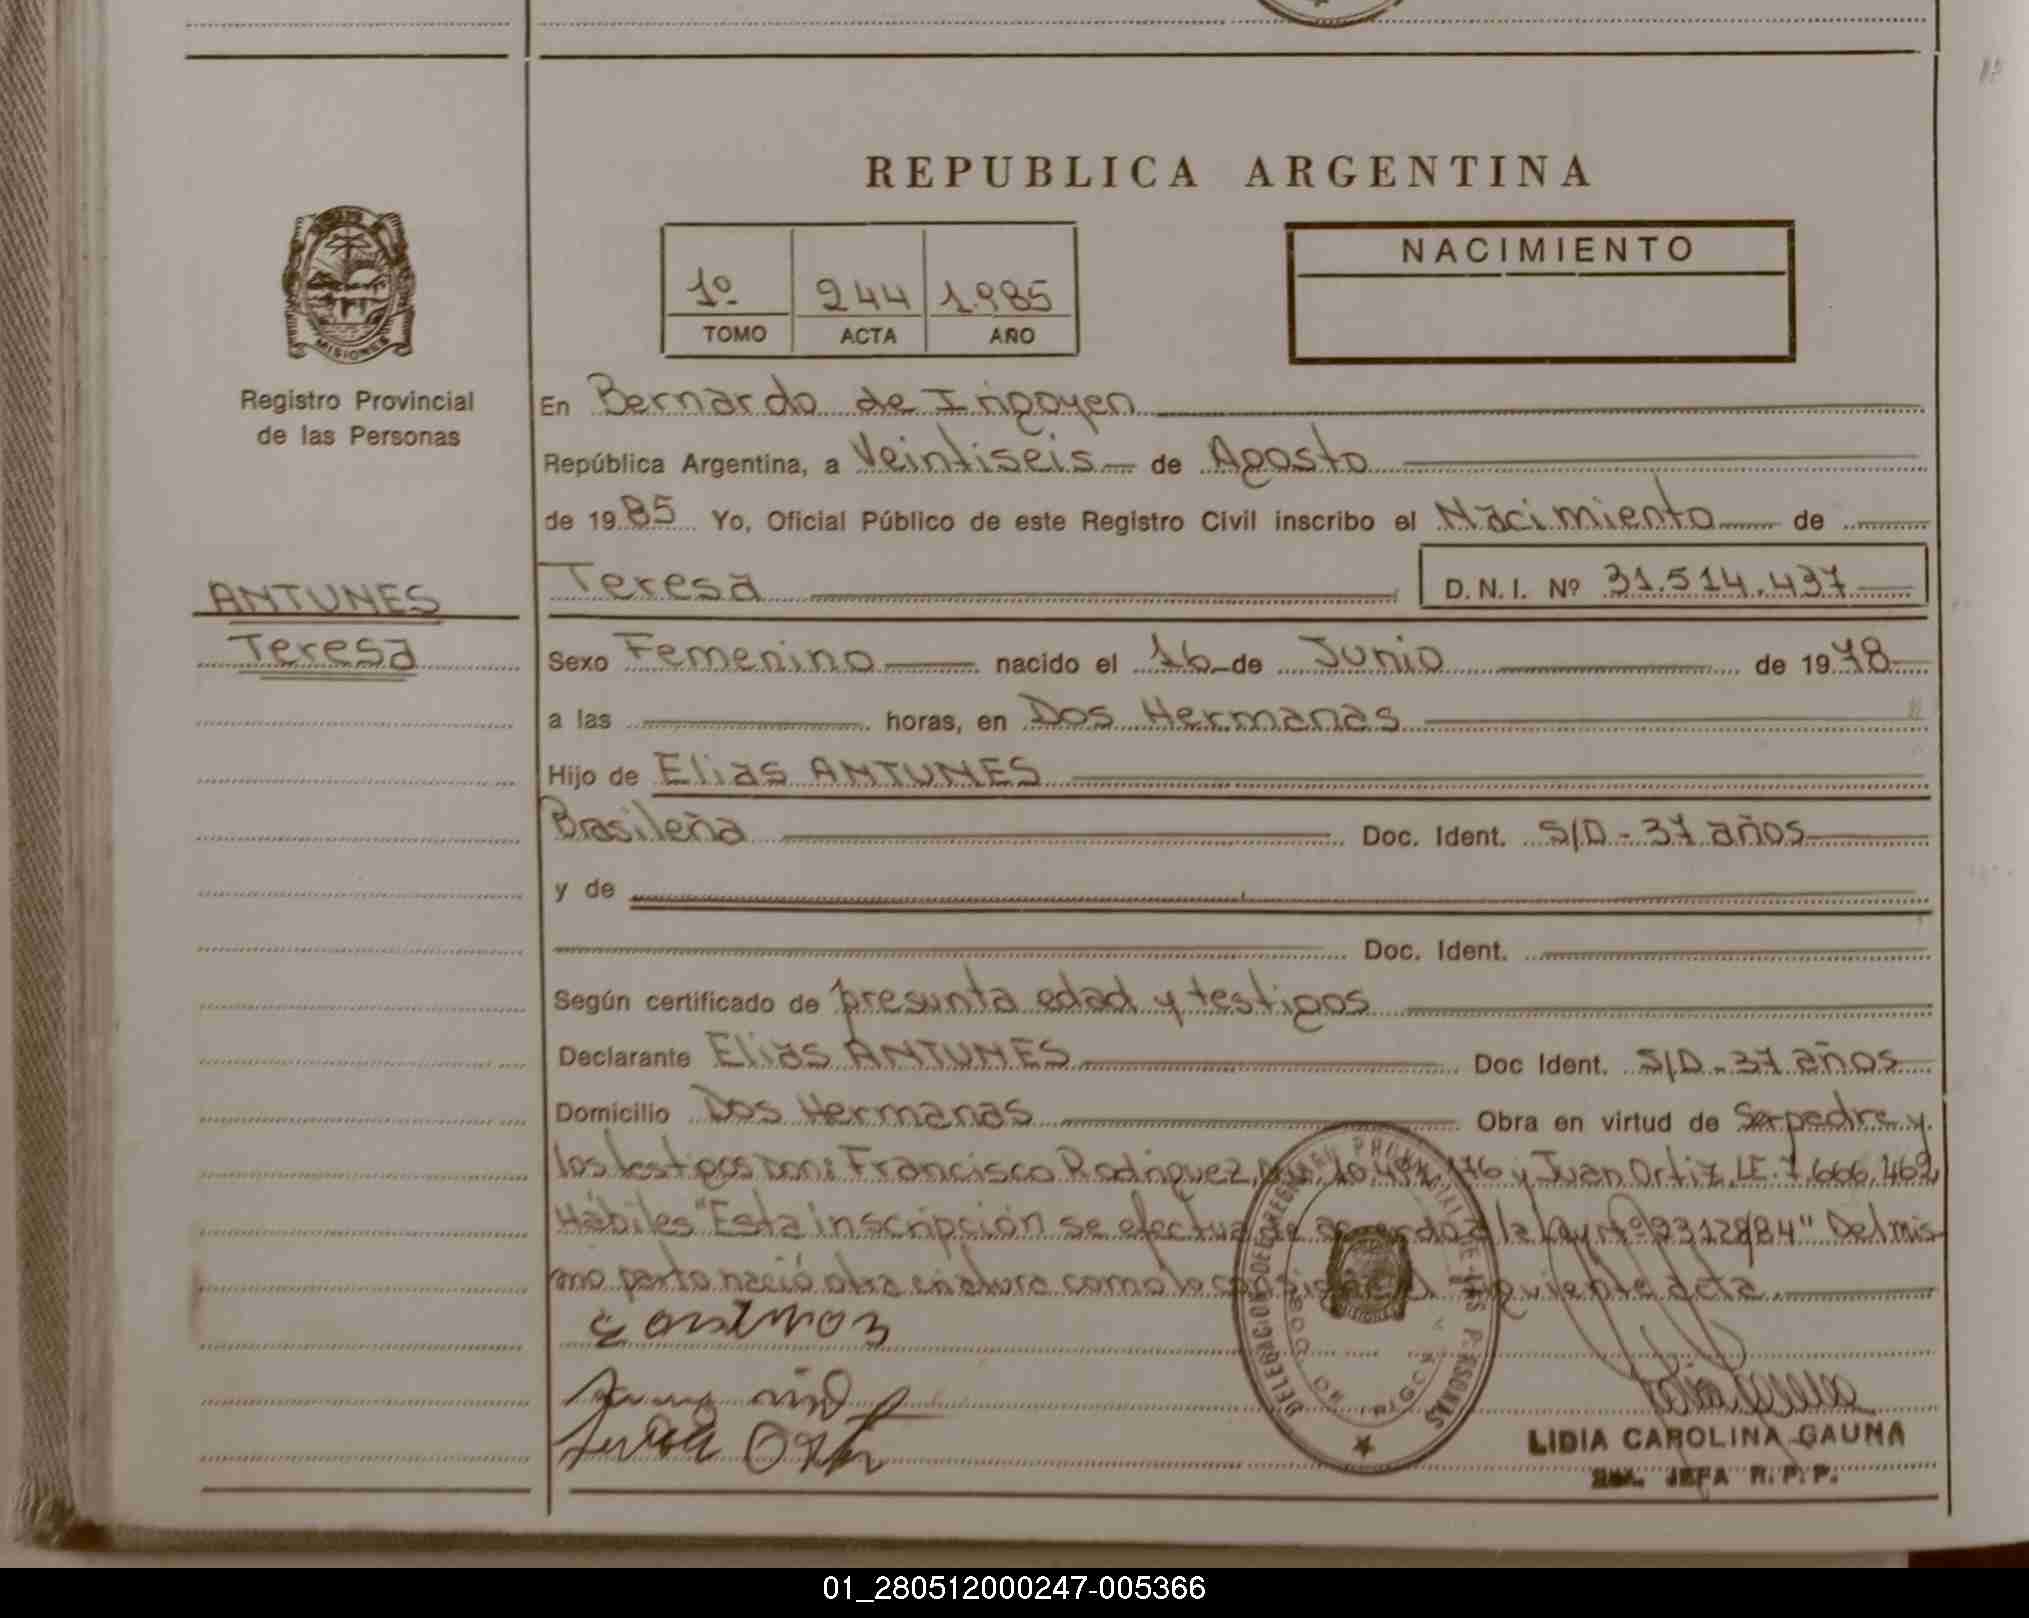 REPUBLICA ARGENTINA
NACIMIENTO
1º 244 1.985
TOMO ACTA AÑO
MISIONES
Registro Provincial
de las Personas
En Bernardo de Irigoyen
República Argentina, a Veintiseis de Agosto
de 1985 Yo, Oficial Público de este Registro Civil inscribo el Nacimiento de
ANTUNES
Teresa
Teresa D.N.I. Nº 31.514.437
Sexo Femenino nacido el 16 de Junio de 1978
a las horas, en Dos Hermanas
Hijo de Elias ANTUNES
Brasileña Doc. Ident. S/D - 37 años
y de
Doc. Ident.
Según certificado de presunta edad y testigos
Declarante Elias ANTUNES Doc Ident. S/D - 37 años
Domicilio Dos Hermanas Obra en virtud de Ser padre y
los testigos Don: Francisco Rodriguez, y Juan Ortiz, LE. 7.666.462
Hábiles "Esta inscripción se efectua de acuerdo a la Ley Nº 23128/84" Del mis-
mo parto nació otra criatura como lo consigna el siguiente acta.
DELEGACION DEL REGISTRO PROVINCIAL DE LAS PERSONAS
LIDIA CAROLINA GAUNA
JEFA R.P.P.
01_280512000247-005366